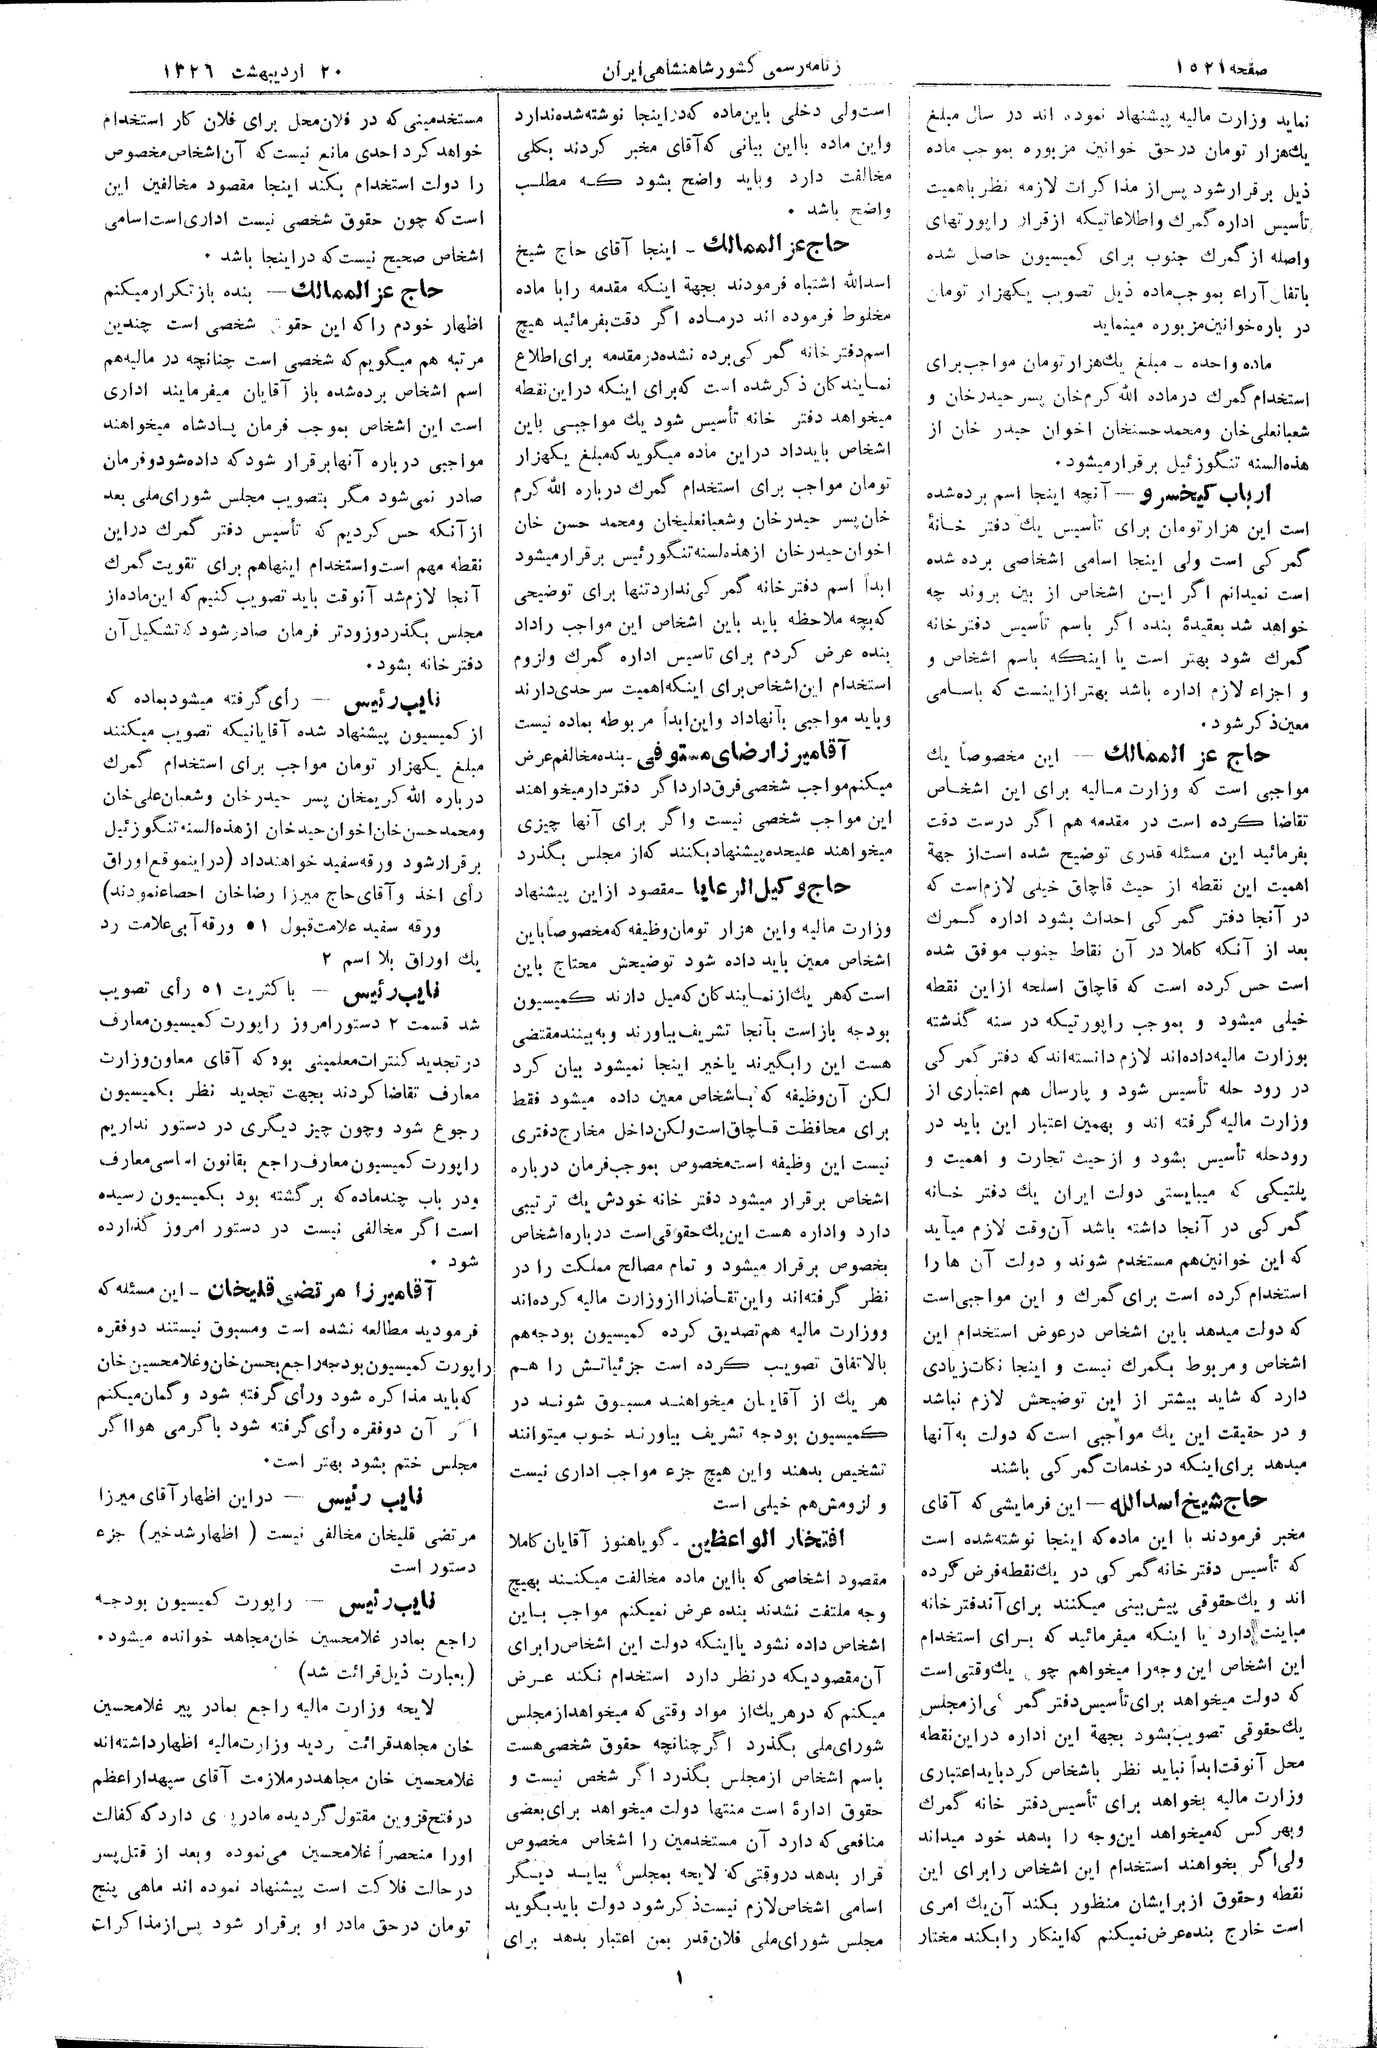 صفحه ۱۵۲۱
ز نامه رسمی کشور شاهنشاهی ایران
۲۰ اردیبهشت ۱۳۲۶
نماید وزارت مالیه پیشنهاد نموده اند در سال مبلغ
یك هزار تومان در حق خوانین مزبوره بموجب ماده
ذیل برقرار شود پس از مذاکرات لازمه نظر باهمیت
تأسیس اداره گمرك و اطلاعاتیکه از قرار راپورتهای
واصله از گمرك جنوب برای کمیسیون حاصل شده
باتفاق آراء بموجب ماده ذیل تصویب یکهزار تومان
در باره خوانین مزبوره مینماید
ماده واحده ـ مبلغ یك هزار تومان مواجب برای
استخدام گمرك در ماده الله کرم خان پسر حیدر خان و
شعبانعلی خان و محمد حسنخان اخوان حیدر خان از
هذه السنه تنگوزئیل برقرار میشود.
ارباب کیخسرو — آنچه اینجا اسم برده شده
است این هزار تومان برای تأسیس یك دفتر خانهٔ
گمرکی است ولی اینجا اسامی اشخاصی برده شده
است نمیدانم اگر این اشخاص از بین بروند چه
خواهد شد بعقیدهٔ بنده اگر باسم تأسیس دفتر خانه
گمرك شود بهتر است یا اینکه باسم اشخاص و
و اجزاء لازم اداره باشد بهتر از اینست که باسامی
معین ذکر شود.
حاج عز الممالك — این مخصوصاً یك
مواجبی است که وزارت مالیه برای این اشخاص
تقاضا کرده است در مقدمه هم اگر درست دقت
بفرمائید این مسئله قدری توضیح شده است از جهة
اهمیت این نقطه از حیث قاچاق خیلی لازم است که
در آنجا دفتر گمرکی احداث بشود اداره گمرك
بعد از آنکه کاملا در آن نقاط جنوب موفق شده
است حس کرده است که قاچاق اسلحه از این نقطه
خیلی میشود و بموجب راپورتیکه در سنه گذشته
بوزارت مالیه داده اند لازم دانسته اند که دفتر گمرکی
در رود حله تأسیس شود و پارسال هم اعتباری از
وزارت مالیه گرفته اند و بهمین اعتبار این باید در
رودحله تأسیس بشود و از حیث تجارت و اهمیت و
پلتیکی که میبایستی دولت ایران یك دفتر خانه
گمرکی در آنجا داشته باشد آن وقت لازم میآید
که این خوانین هم مستخدم شوند و دولت آن ها را
استخدام کرده است برای گمرك و این مواجبی است
که دولت میدهد باین اشخاص در عوض استخدام این
اشخاص و مربوط بگمرك نیست و اینجا نکات زیادی
دارد که شاید بیشتر از این توضیحش لازم نباشد
و در حقیقت این یك مواجبی است که دولت به آنها
میدهد برای اینکه در خدمات گمرکی باشند
حاج شیخ اسدالله — این فرمایشی که آقای
مخبر فرمودند با این ماده که اینجا نوشته شده است
که تأسیس دفتر خانه گمرکی در یك نقطه فرض کرده
اند و یك حقوقی پیش بینی میکنند برای آن دفتر خانه
مباینت دارد یا اینکه میفرمائید که برای استخدام
این اشخاص این وجه را میخواهم چو یك وقتی است
که دولت میخواهد برای تأسیس دفتر گمرکی از مجلس
یك حقوقی تصویب بشود بجهة این اداره در این نقطه
محل آنوقت ابداً نباید نظر باشخاص کرد باید اعتباری
وزارت مالیه بخواهد برای تأسیس دفتر خانه گمرك
و بهر کس که میخواهد این وجه را بدهد خود میداند
ولی اگر بخواهند استخدام این اشخاص را برای این
نقطه و حقوق از برایشان منظور بکند آن یك امری
است خارج بنده عرض نمیکنم که اینکار را بکند مختار
است ولی دخلی باین ماده که در اینجا نوشته شده ندارد
و این ماده با این بیانی که آقای مخبر کردند بکلی
مخالفت دارد و باید واضح بشود که مطلب
واضح باشد .
حاج عز الممالك ـ اینجا آقای حاج شیخ
اسدالله اشتباه فرمودند بجهة اینکه مقدمه را با ماده
مخلوط فرموده اند در ماده اگر دقت بفرمائید هیچ
اسم دفتر خانه گمرکی برده نشده در مقدمه برای اطلاع
نمایندکان ذکر شده است که برای اینکه در این نقطه
میخواهد دفتر خانه تأسیس شود یك مواجبی باین
اشخاص باید داد در این ماده میگوید که مبلغ یکهزار
تومان مواجب برای استخدام گمرك درباره الله کرم
خان پسر حیدر خان و شعبانعلیخان و محمد حسن خان
اخوان حیدر خان از هذه لسنه تنگور ئیس برقرار میشود
ابداً اسم دفتر خانه گمرکی ندارد تنها برای توضیحی
که بچه ملاحظه باید باین اشخاص این مواجب را داد
بنده عرض کردم برای تاسیس اداره گمرك و لزوم
استخدام این اشخاص برای اینکه اهمیت سرحدی دارند
و باید مواجبی بآنها داد و این ابداً مربوطه بماده نیست
آقا میرزا رضای مستوفی ـ بنده مخالفم عرض
میکنم مواجب شخصی فرق دارد اگر دفتر دار میخواهند
این مواجب شخصی نیست و اگر برای آنها چیزی
میخواهند علیحده پیشنهاد بکنند که از مجلس بگذرد
حاج وکیل الرعایا ـ مقصود از این پیشنهاد
وزارت مالیه و این هزار تومان وظیفه که مخصوصاً باین
اشخاص معین باید داده شود توضیحش محتاج باین
است که هر یك از نمایندکان که میل دارند کمیسیون
بودجه باز است بآنجا تشریف بیاورند و به بینند مقتضی
هست این را بگیرند یا خیر اینجا نمیشود بیان کرد
لکن آن وظیفه که باشخاص معین داده میشود فقط
برای محافظت قاچاق است ولکن داخل مخارج دفتری
نیست این وظیفه است مخصوص بموجب فرمان درباره
اشخاص برقرار میشود دفتر خانه خودش یك ترتیبی
دارد و اداره هست این یك حقوقی است درباره اشخاص
بخصوص برقرار میشود و تمام مصالح مملکت را در
نظر گرفته اند و این تقاضا را از وزارت مالیه کرده اند
و وزارت مالیه هم تصدیق کرده کمیسیون بودجه هم
بالاتفاق تصویب کرده است جزئیاتش را هم
هر یك از آقایان میخواهند مسبوق شوند در
کمیسیون بودجه تشریف بیاورند خوب میتوانند
تشخیص بدهند و این هیچ جزء مواجب اداری نیست
و لزومش هم خیلی است
افتخار الواعظین ـ گویا هنوز آقایان کاملا
مقصود اشخاصی که با این ماده مخالفت میکنند بهیچ
وجه ملتفت نشدند بنده عرض نمیکنم مواجب باین
اشخاص داده نشود یا اینکه دولت این اشخاص را برای
آن مقصودیکه در نظر دارد استخدام نکند عرض
میکنم که در هر یك از مواد وقتی که میخواهد از مجلس
شورای ملی بگذرد اگر چنانچه حقوق شخصی هست
باسم اشخاص از مجلس بگذرد اگر شخص نیست و
حقوق ادارهٔ است منتها دولت میخواهد برای بعضی
منافعی که دارد آن مستخدمین را اشخاص مخصوص
قرار بدهد در وقتی که لایحه بمجلس بیاید دیگر
اسامی اشخاص لازم نیست ذکر شود دولت باید بگوید
مجلس شورای ملی فلان قدر بمن اعتبار بدهد برای
مستخدمینی که در فلان محل برای فلان کار استخدام
خواهد کرد احدی مانع نیست که آن اشخاص مخصوص
را دولت استخدام بکند اینجا مقصود مخالفین این
است که چون حقوق شخصی نیست اداری است اسامی
اشخاص صحیح نیست که در اینجا باشد .
حاج عز الممالك — بنده باز تکرار میکنم
اظهار خودم را که این حقوق شخصی است چندین
مرتبه هم میگویم که شخصی است چنانچه در مالیه هم
اسم اشخاص برده شده باز آقایان میفرمایند اداری
است این اشخاص بموجب فرمان پادشاه میخواهند
مواجبی درباره آنها برقرار شود که داده شود و فرمان
صادر نمی شود مگر بتصویب مجلس شورای ملی بعد
از آنکه حس کردیم که تأسیس دفتر گمرك در این
نقطه مهم است و استخدام اینها هم برای تقویت گمرك
آنجا لازم شد آنوقت باید تصویب کنیم که این ماده از
مجلس بگذرد و زودتر فرمان صادر شود که تشکیل آن
دفتر خانه بشود.
نایب رئیس — رأی گرفته میشود بماده که
از کمیسیون پیشنهاد شده آقایانیکه تصویب میکنند
مبلغ یکهزار تومان مواجب برای استخدام گمرك
درباره الله کریمخان پسر حیدر خان و شعبان علی خان
و محمد حسن خان اخوان حید خان از هذه السنه تنگوزئیل
برقرار شود ورقه سفید خواهند داد (در اینموقع اوراق
رأی اخذ و آقای حاج میرزا رضا خان احصاء نمودند)
ورقه سفید علامت قبول ۵۱ ورقه آبی علامت رد
یك اوراق بلا اسم ۲
نایب رئیس — با کثریت ۵۱ رأی تصویب
شد قسمت ۲ دستور امروز راپورت کمیسیون معارف
در تجدید کنترات معلمینی بود که آقای معاون وزارت
معارف تقاضا کردند بجهت تجدید نظر بکمیسیون
رجوع شود و چون چیز دیگری در دستور نداریم
راپورت کمیسیون معارف راجع بقانون اساسی معارف
و در باب چند ماده که برگشته بود بکمیسیون رسیده
است اگر مخالفی نیست در دستور امروز گذارده
شود .
آقا میرزا مرتضی قلیخان ـ این مسئله که
فرمودید مطالعه نشده است و مسبوق نیستند دو فقره
راپورت کمیسیون بودجه راجع بحسن خان و غلامحسین خان
که باید مذاکره شود و رأی گرفته شود و گمان میکنم
اگر آن دو فقره رأی گرفته شود با گرمی هوا اگر
مجلس ختم بشود بهتر است.
نایب رئیس — در این اظهار آقای میرزا
مرتضی قلیخان مخالفی نیست ( اظهار شد خیر ) جزء
دستور است
نایب رئیس — راپورت کمیسیون بودجه
راجع بمادر غلامحسین خان مجاهد خوانده میشود.
(بعبارت ذیل قرائت شد)
لایحه وزارت مالیه راجع بمادر پیر غلامحسین
خان مجاهد قرائت ردید وزارت مالیه اظهار داشته اند
غلامحسین خان مجاهد در ملازمت آقای سپهدار اعظم
در فتح قزوین مقتول گردیده مادر ی دارد که کفالت
او را منحصراً غلامحسین می نموده و بعد از قتل پسر
در حالت فلاکت است پیشنهاد نموده اند ماهی پنج
تومان در حق مادر او برقرار شود پس از مذاکرات
۱